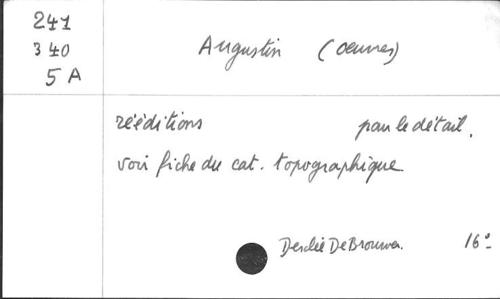 241
340
5 A
Augustin (oeuvres)
rééditions pour le détail,
voir fiche du cat. topographique
Desclée De Brouwer. 16°